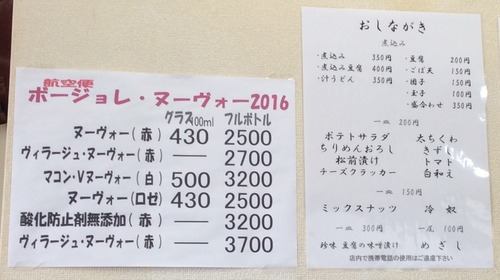 航空便
ボージョレ・ヌーヴォー2016
グラス100ml フルボトル
ヌーヴォー(赤) 430 2500
ヴィラージュ・ヌーヴォー(赤) ― 2700
マコン・Vヌーヴォー(白) 500 3200
ヌーヴォー(ロゼ) 430 2500
酸化防止剤無添加(赤) ― 3200
ヴィラージュ・ヌーヴォー(赤) ― 3700
おしながき
煮込み
・煮込み 350円 ・豆腐 200円
・煮込み豆腐 400円 ・ごぼ天 150円
・汁うどん 350円 ・団子 150円
・玉子 100円
・盛合わせ 350円
一皿 200円
ポテトサラダ 太ちくわ
ちりめんおろし きずし
松前漬け トマト
チーズクラッカー 白和え
一皿 150円
ミックスナッツ 冷奴
一皿 300円 一尾 100円
珍味 豆腐の味噌漬け めざし
店内で携帯電話の使用はご遠慮下さい